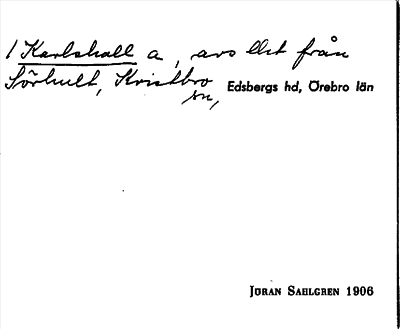 1 Karlshall a, avs lht från
Sörhult, Kvistbro
sn, Edsbergs hd, Örebro län
JÖRAN SAHLGREN 1906